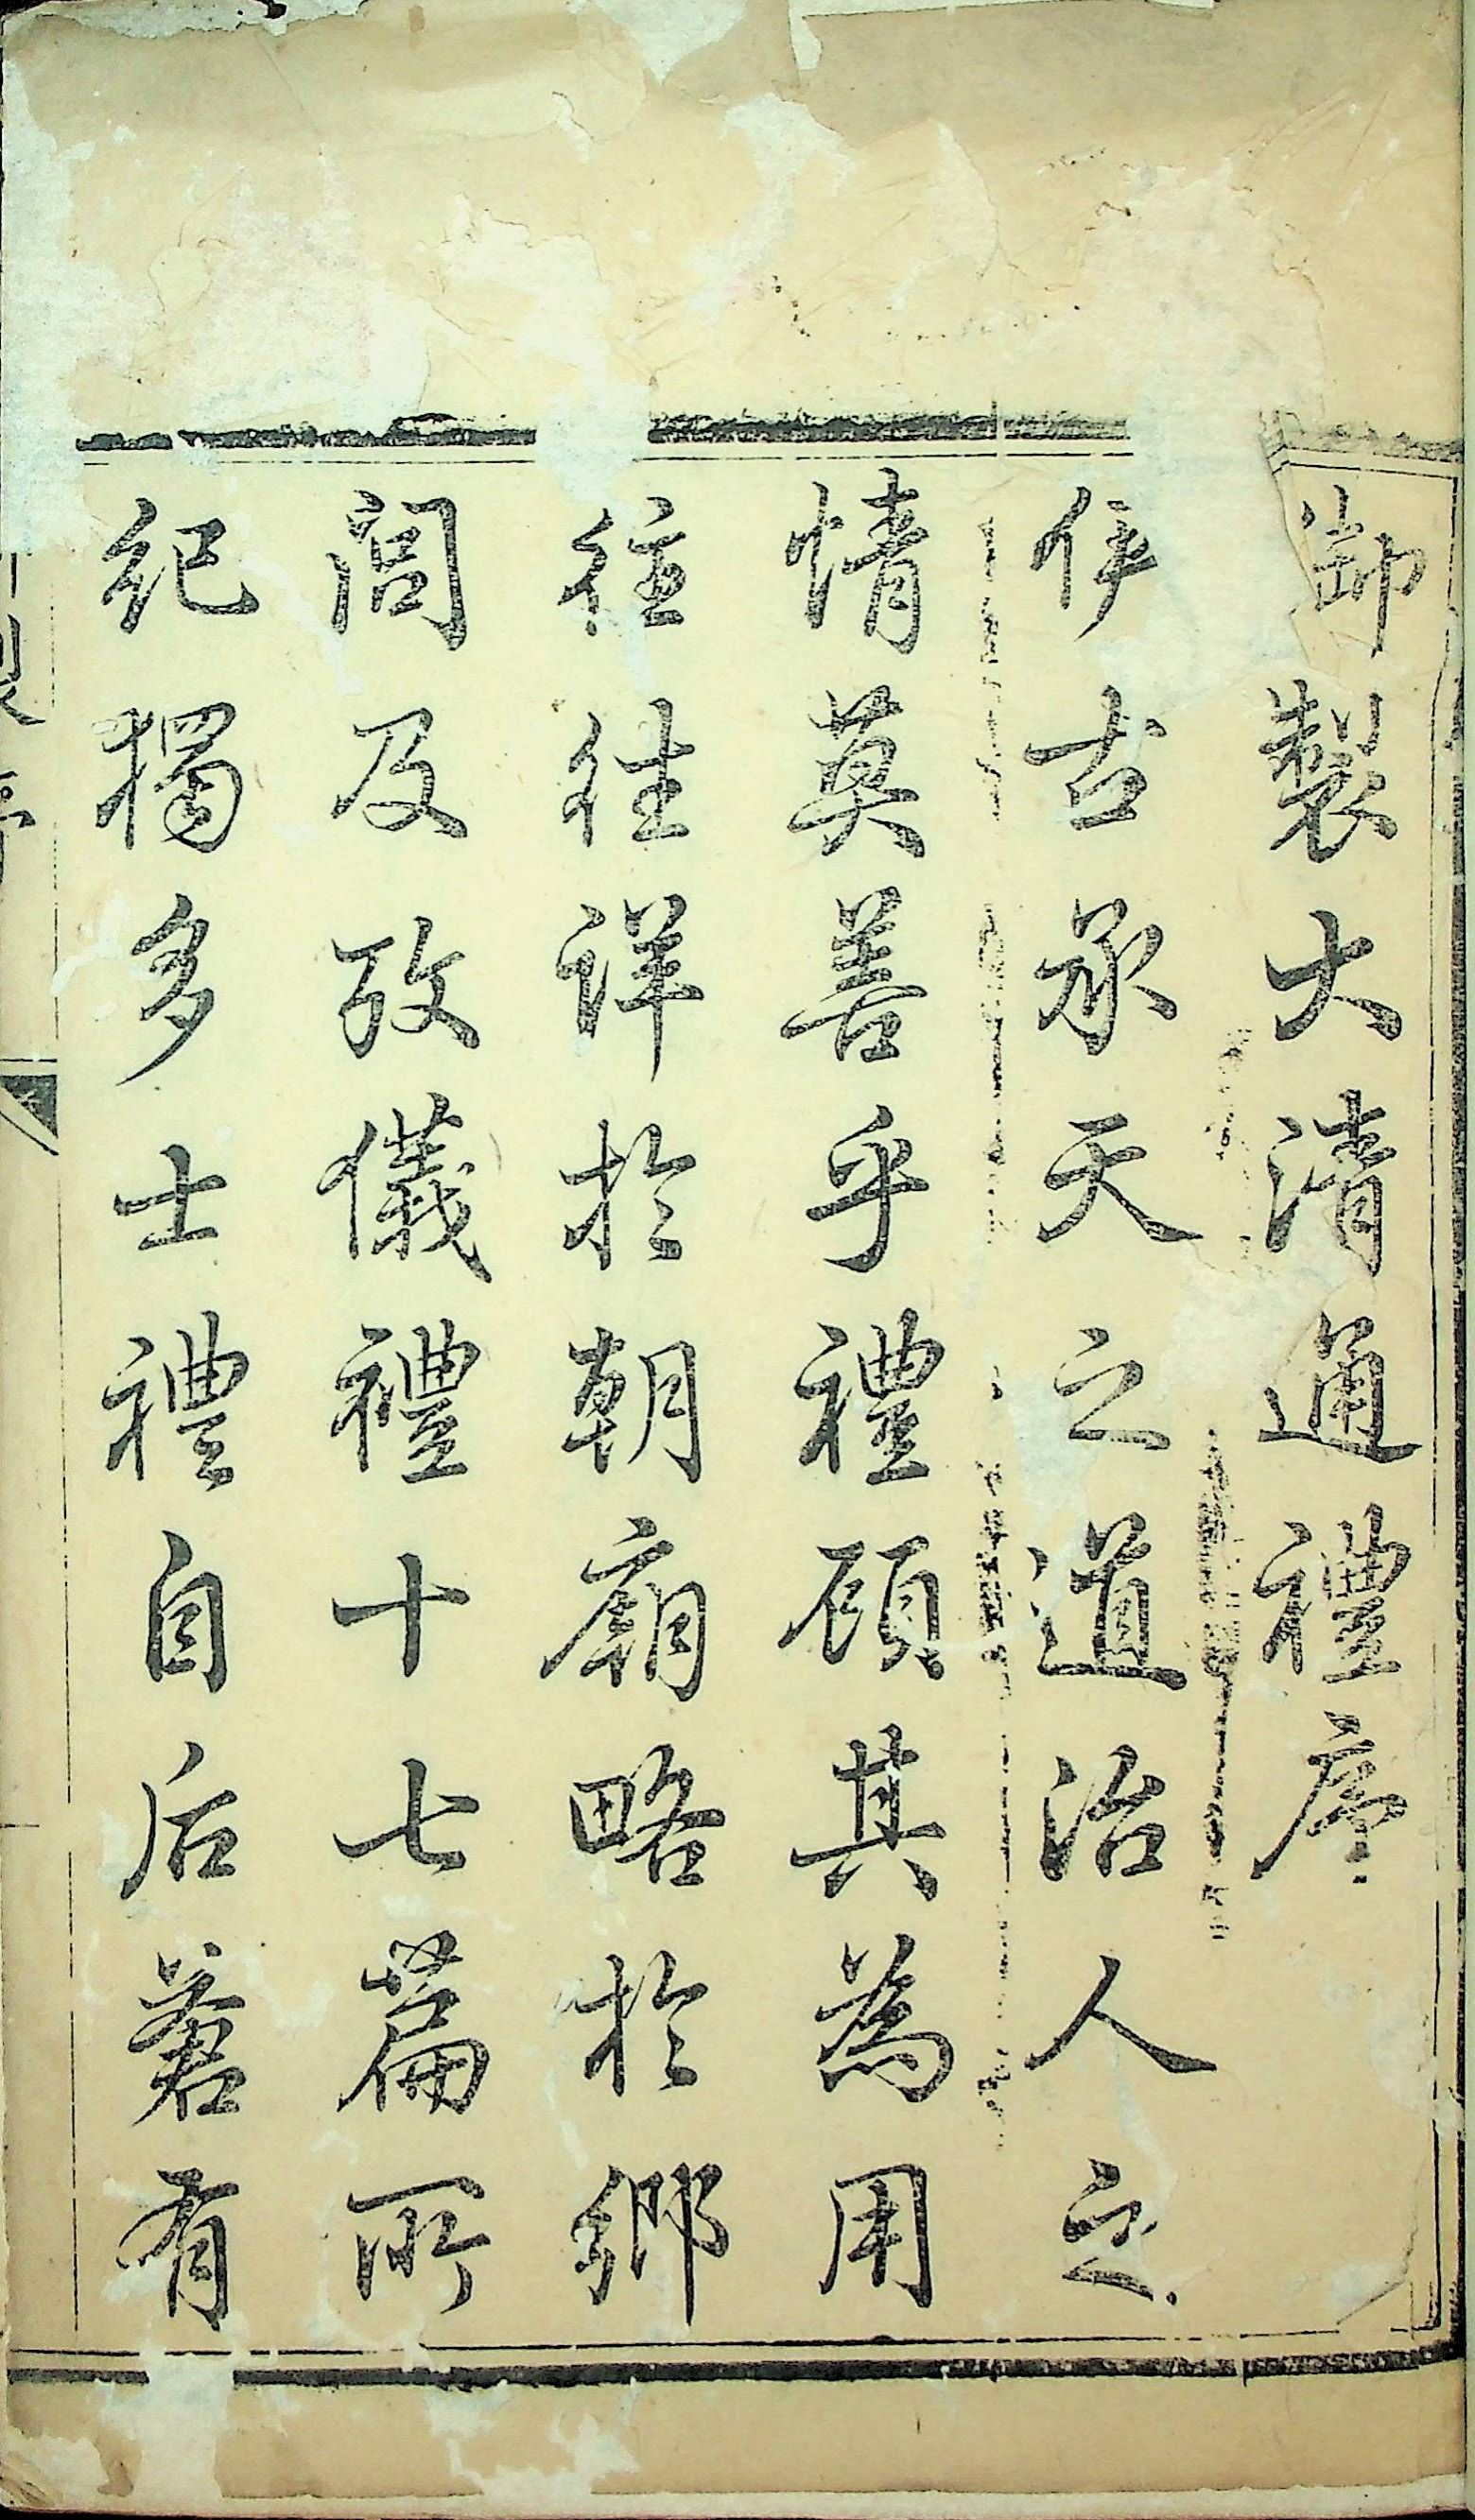 御製大清通禮序
伊古承天之道治人之
情莫善乎禮顧其為用
徃徃詳於朝廟略於鄉
閭及攷儀禮十七篇所
紀獨多士禮自后蒼有
製序